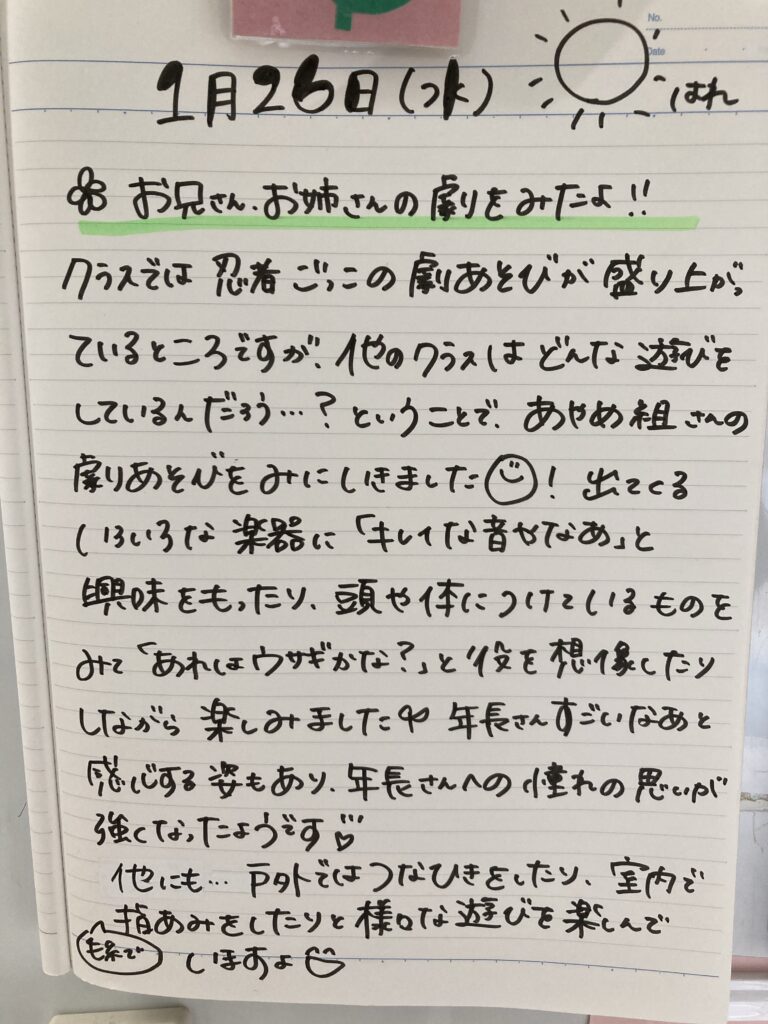 No.
Date
1月26日(水)
はれ
お兄さん、お姉さんの劇りをみたよ!!
クラスでは 忍者ごっこの劇あそびが盛り上がっ
ているところですが、他のクラスは どんな遊びを
しているんだろう…?ということで、あやめ組さんの
劇りあそびをみにいきました!出てくる
いろいろな楽器に「キレイな音やなあ」と
興味をもったり、頭や体につけているものを
みて「あれはウサギかな?」と役を想像したり
しながら楽しみました 年長さんすごいなあと
感心する姿もあり、年長さんへの憧れの思いが
強くなったようです
他にも…戸外ではつなひきをしたり、室内で
指あみをしたりと様々な遊びを楽しんで
毛糸で
いますよ